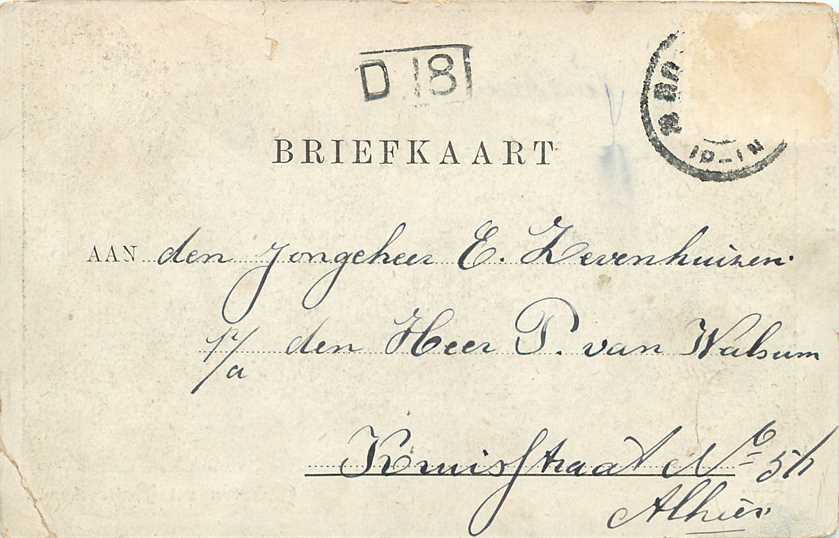 D 18
BRIEFKAART
AAN den Jongeheer E. Zevenhuizen.
p/a den Heer P. van Walsum
Kruisstraat No 5h
Alhier